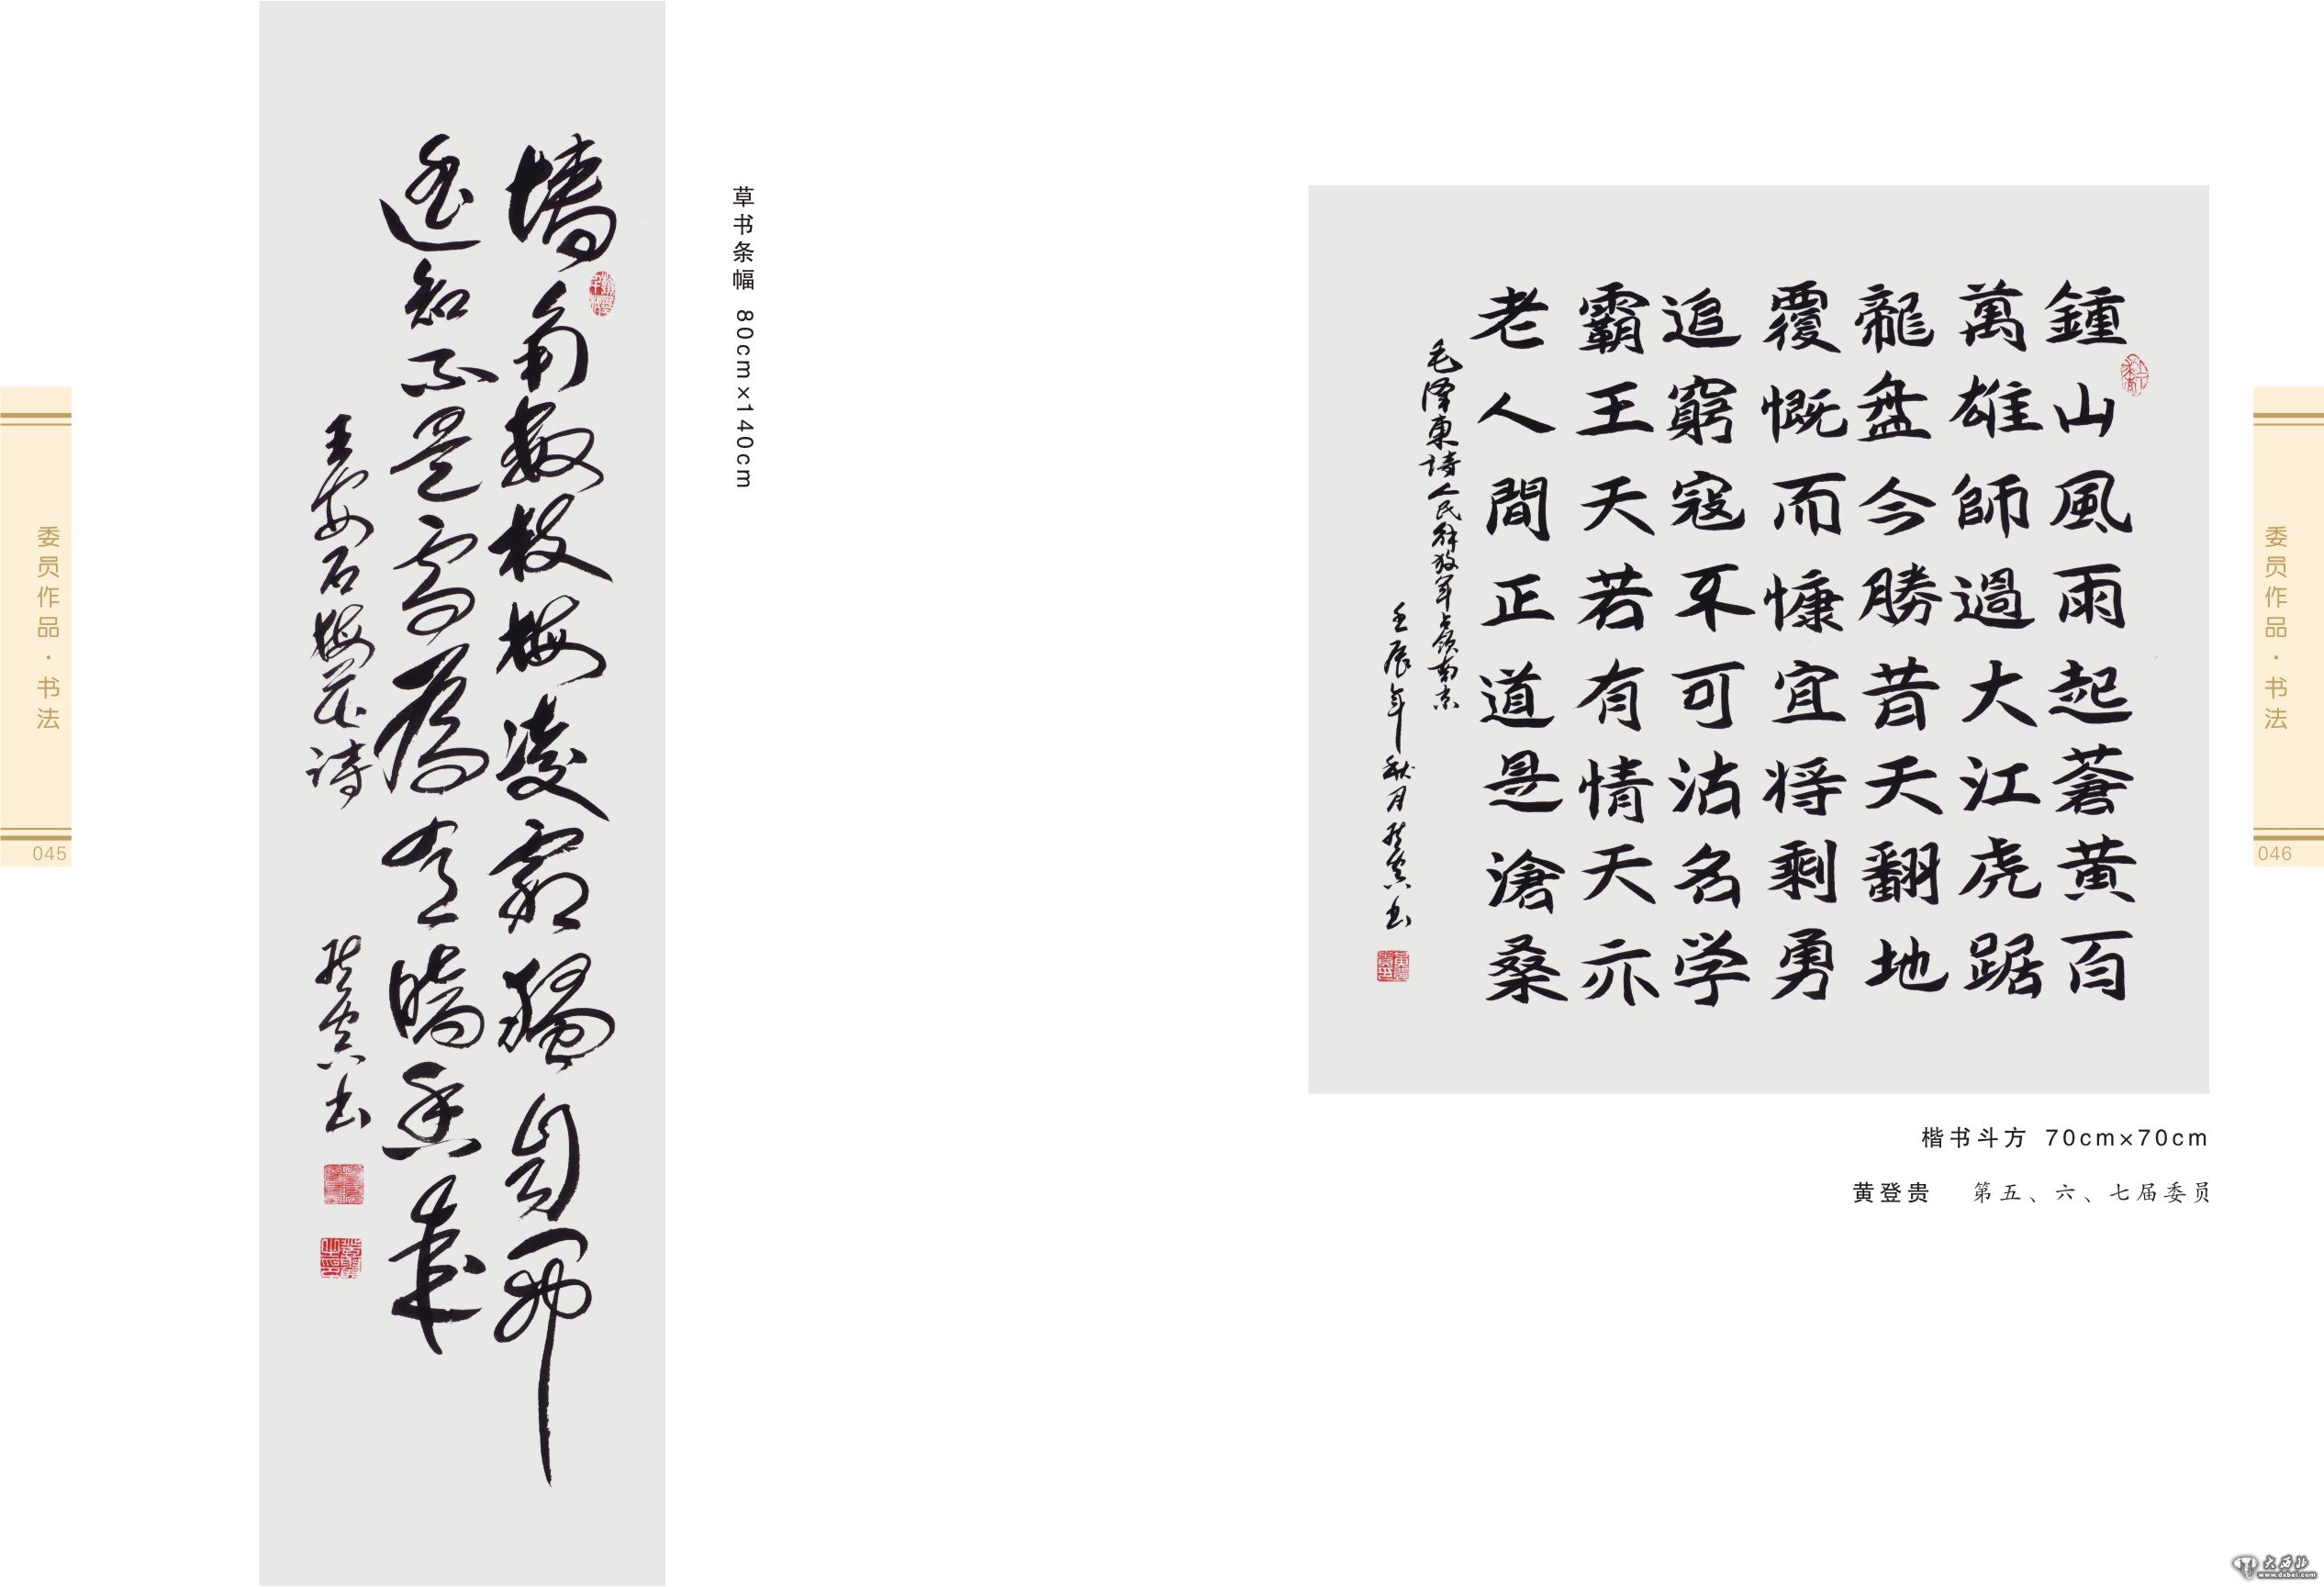 委员作品·书法
045
墙角數枝梅凌霜獨自開
遥知不是雪為有暗香來
王安石梅花詩
登贵书
草书条幅 80cm×140cm
鍾山風雨起蒼黄百
萬雄師過大江虎踞
龍盘今勝昔天翻地
覆慨而慷宜将剩勇
追窮寇不可沽名学
霸王天若有情天亦
老人間正道是滄桑
毛澤東詩人民解放军占領南京
壬辰年秋月登贵书
楷书斗方 70cm×70cm
黄登贵 第五、六、七届委员
委员作品·书法
046
大西北
www.dxbei.com